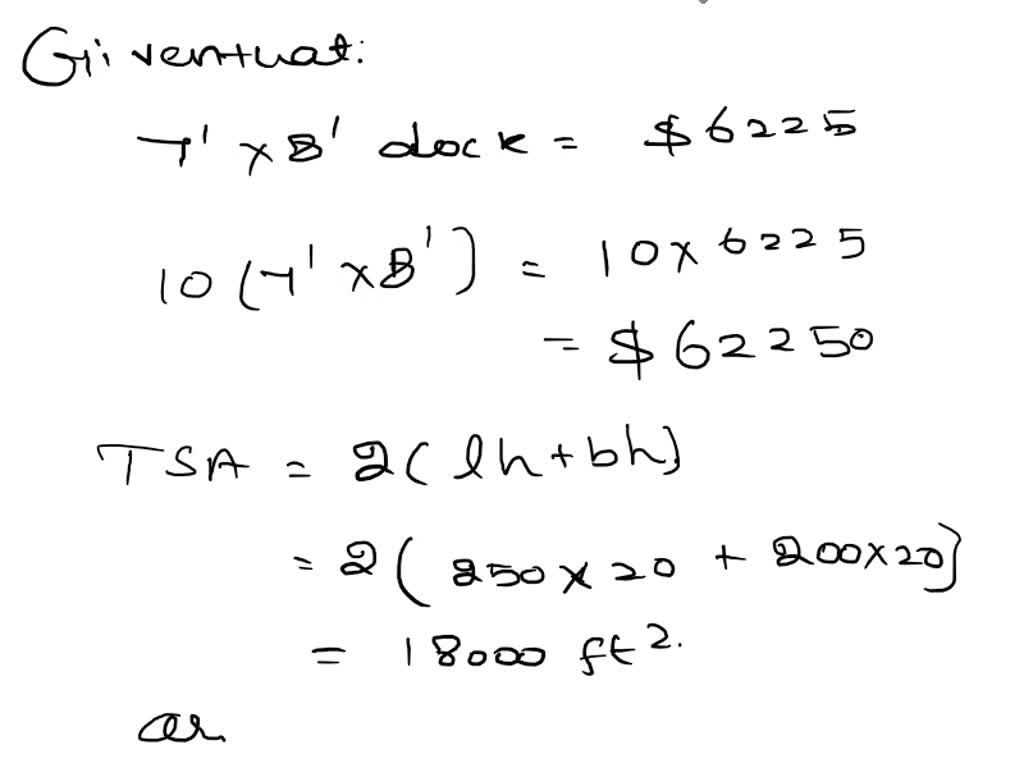 Given that:
7' x 8' dock = $6225
10 (7' x 8') = 10 x 6225
= $62250
TSA = 2(lh + bh)
= 2(250 x 20 + 200 x 20)
= 18000 ft².
ar